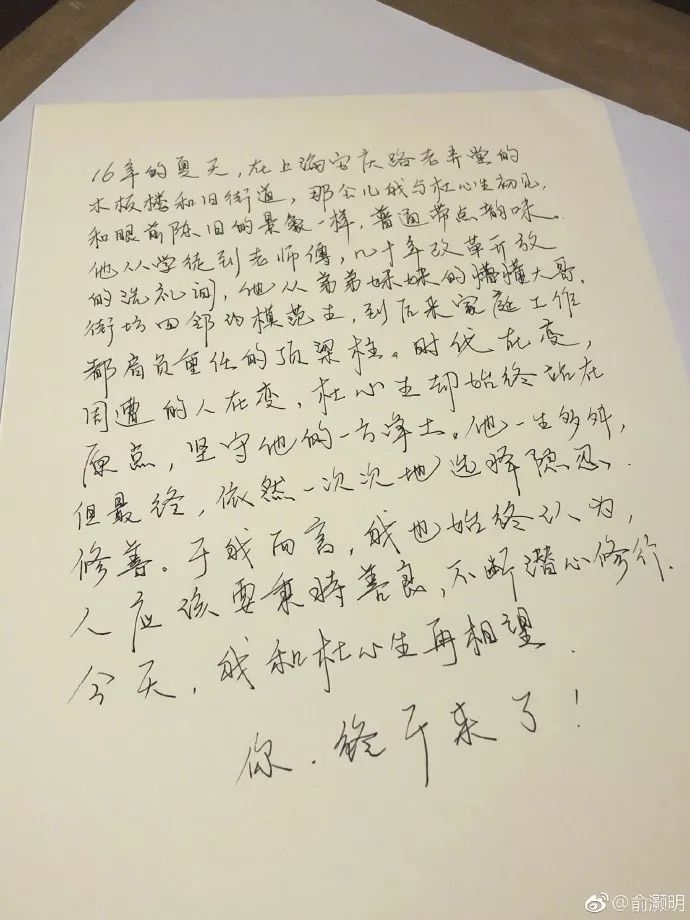 16年的夏天，在上海安庆路老弄堂的
木板楼和旧街道，那会儿我与杜心生初见，
和眼前陈旧的景象一样，普通带点韵味。
他从学徒到老师傅，几十年改革开放
的洗礼间，他从弟弟妹妹的懵懂大哥，
街坊四邻的模范生，到后来家庭工作
都肩负重任的顶梁柱。时代在变，
周遭的人在变，杜心生却始终站在
原点，坚守他的一方净土。他一生多舛，
但最终，依然一次次地选择隐忍、
修善。于我而言，我也始终认为，
人应该要秉持善良，不断潜心修行.
今天，我和杜心生再相望.
你.终于来了！
@俞灏明